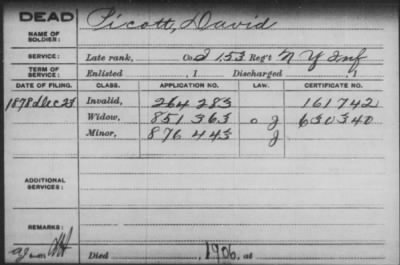 DEAD
NAME OF SOLDIER: Picott, David
SERVICE: Late rank, Co. I 153 Reg't N Y Inf
TERM OF SERVICE: Enlisted , 1 Discharged , 1
DATE OF FILING. CLASS. APPLICATION NO. LAW. CERTIFICATE NO.
1878 Dec 23 Invalid, 264 283 161 742
Widow, 851 363 630 340
Minor, 876 443
ADDITIONAL SERVICES:
REMARKS:
Died , 1906, at